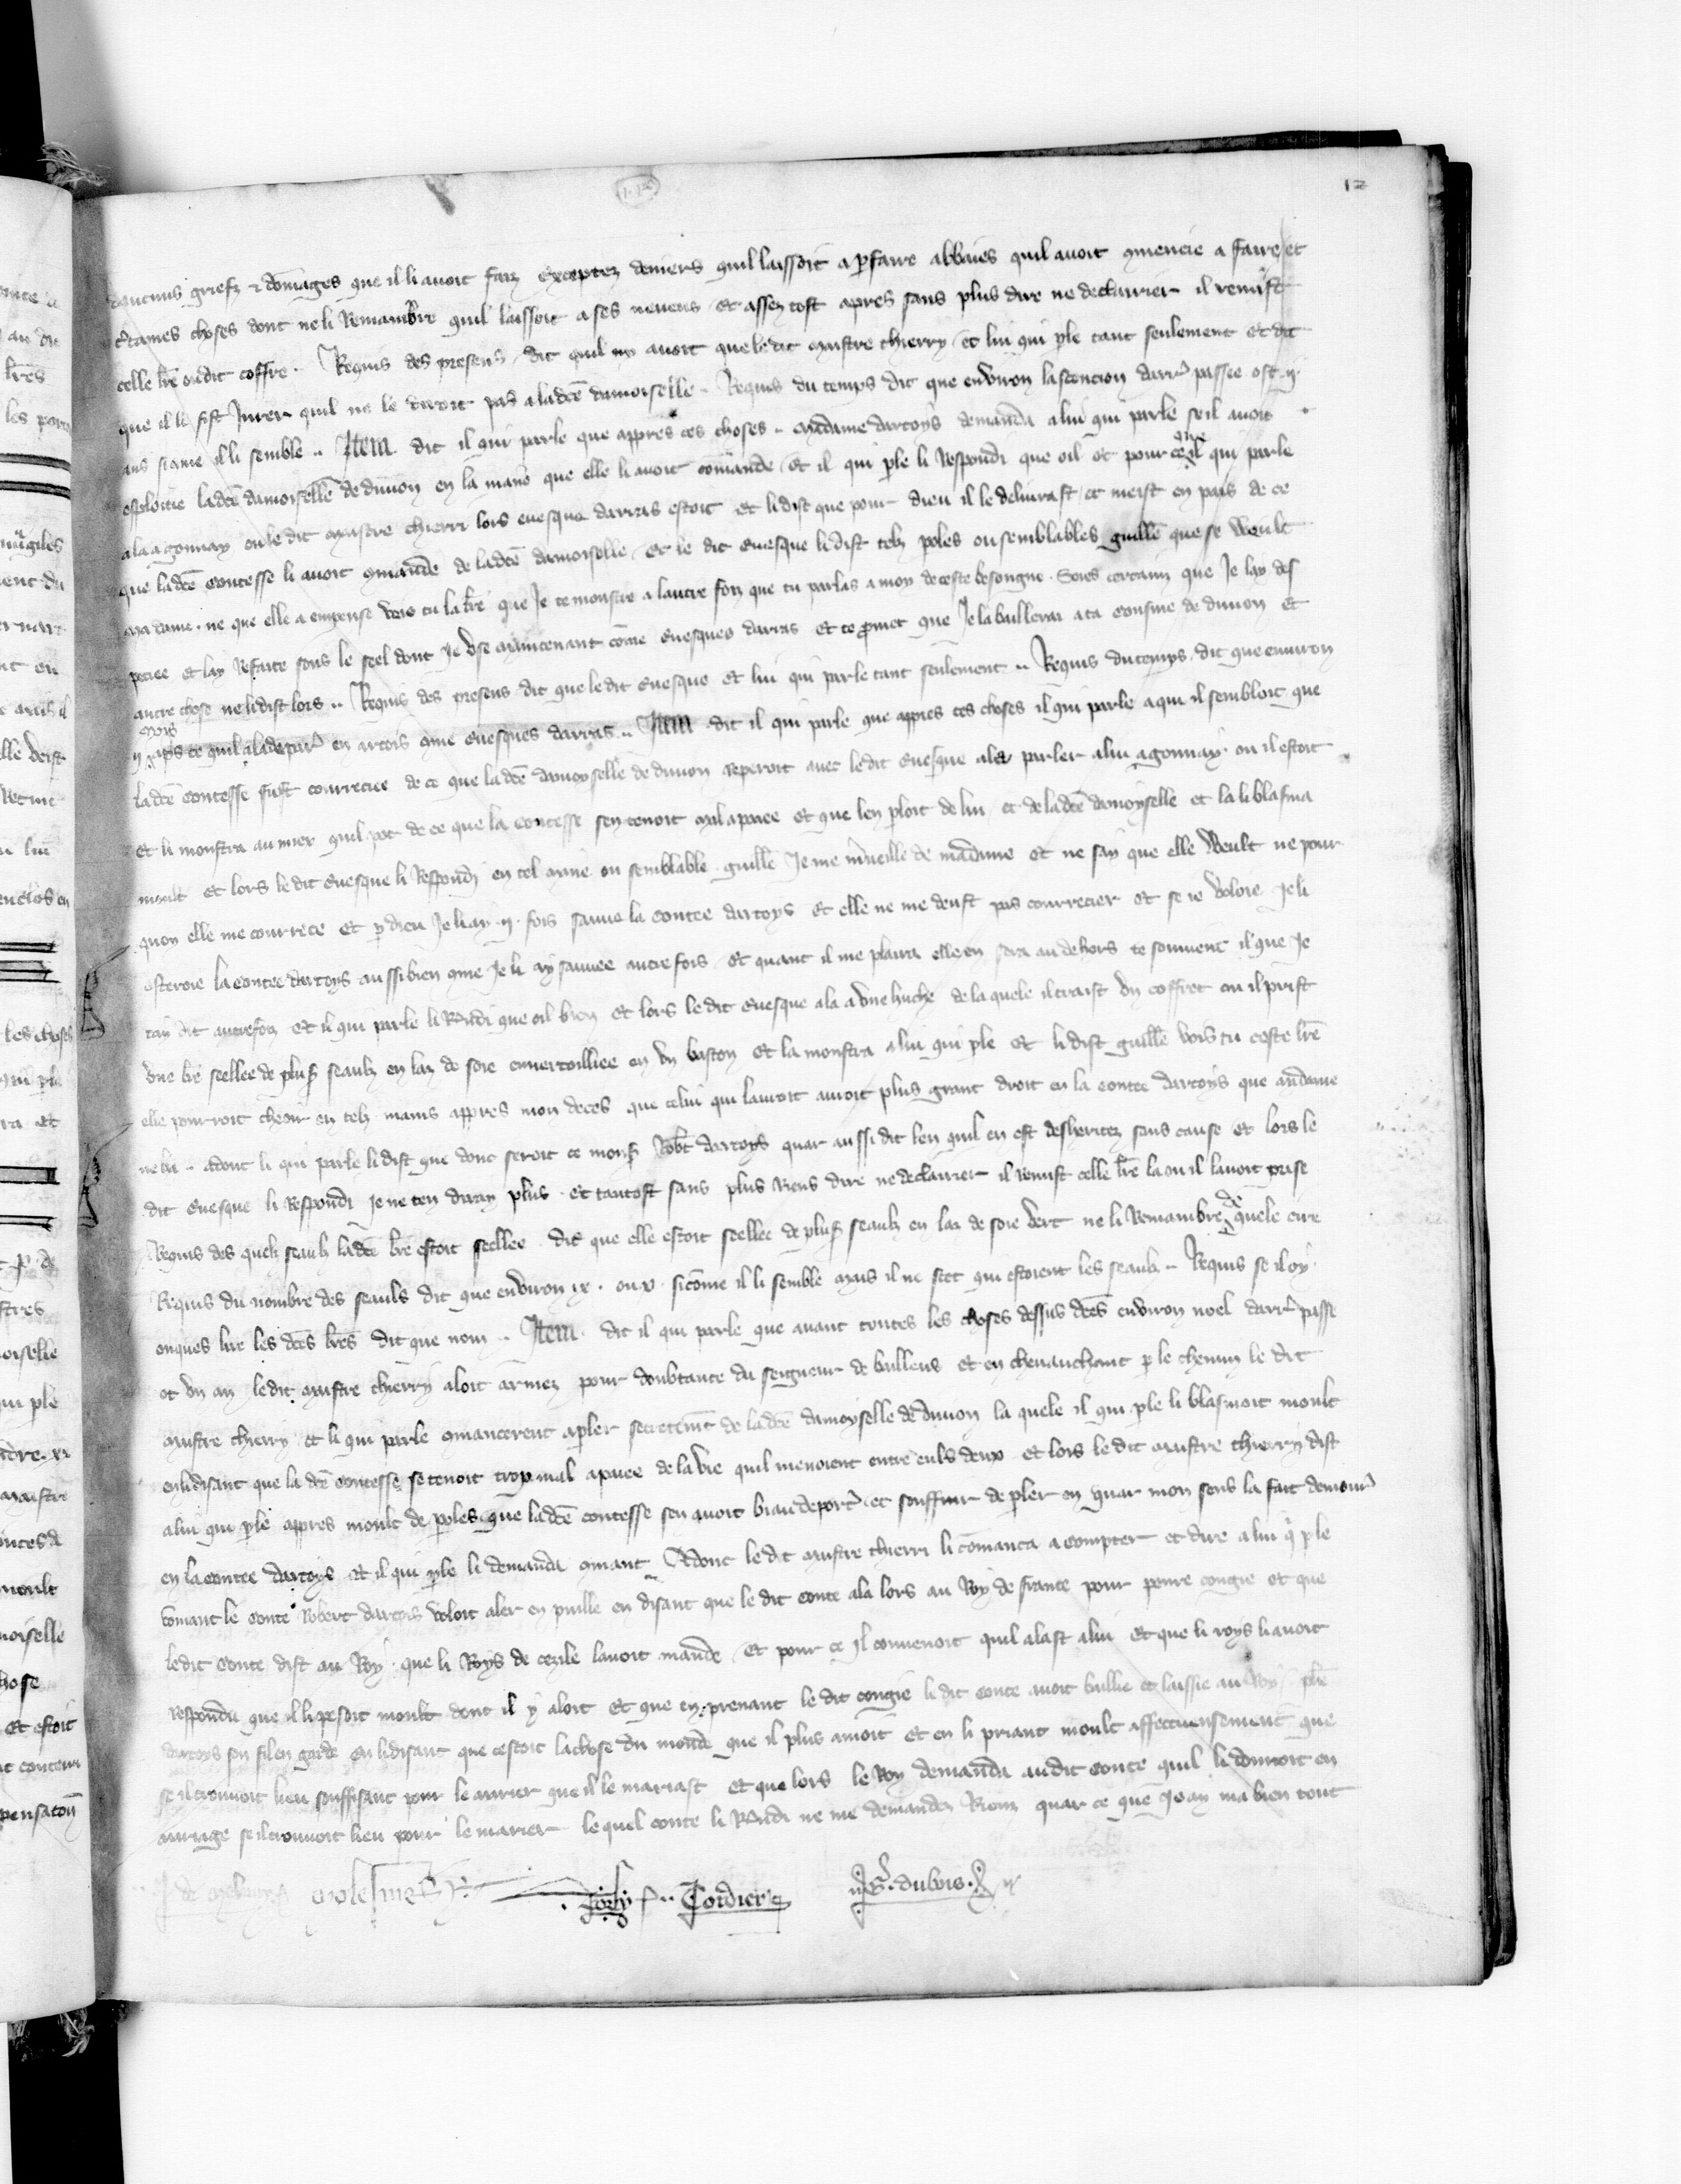 12
griefz & domages que il li avoit faiz exceptez deniers quil laissoit a pfaire abbaies quil avoit mencie a faire et
ctaines choses dont ne li Remambre quil laissoit a ses neveus et assez tost apres sans plus dire ne declairier il remist
celle lre ou dit coffre . Requis des presens dit quil ny avoit que ledit maistre thierry et lui qui ple tant seulement et dit
que il li fist Jurer quil ne le diroit pas a ladce damoiselle . Requis du temps dit que environ lascencion darr passee ot .ij.
ans si cme il li semble .. Item dit il qui parle que appres ces choses .. madame dartoys demanda a lui qui parle se il avoit
esploitie ladce damoiselle de divion en la mane que elle li avoit comande et il qui ple li Respondi que oil et pour ce ala il qui parle
a la gonnay ou le dit maistre thierri lors evesque darras estoit et li dist que pour dieu il le delivrast et meist en pais de ce
que ladce contesse li avoit cmande de ladce damoiselle . Et le dit evesque li dist telz poles ou semblables guille que se veult
ma dame . ne que elle a empense vois tu la lre que Je te monstre a lautre foiz que tu parlas a moy de ceste besongne . Soies certainz que Je lay des
peciee et lay Refaite sous le seel dont Je use maintenant come evesques darras et te pmet que Je la bailleray a ta cousine de divion et
autre chose ne li dist lors .. Requis des presens dit que le dit evesque et lui qui parle tant seulement .. Requis du temps dit que environ
ij mois aps ce quil ala depar en artois cme evesques darras .. Item dit il qui parle que appres ces choses il qui parle a qui il sembloit que
ladce contesse fust courreciee de ce que ladce damoyselle de divion reperoit avec le dit evesque ala parler a lui a gonnay ou il estoit
et li monstra au mier quil pot de ce que la contesse sen tenoit mal apaiee et que len ploit de lui et de ladce damoyselle et la li blasma
moult et lors le dit evesque li Respondi en tel mane ou semblable . guille Je me mveille de madame et ne say que elle veult ne pour
quoy elle me courrece et p dieu Je li ay .ij. fois sauve la contee dartoys et elle ne me deust pas courrecier et se ie voloie Je li
osteroie la contee dartoys aussi bien cme Je li ay sauvee autrefois . et quant il me plaira elle en sera au dehors te souvient il que Je
tay dit autrefoiz et il qui parle li Rndi que oil bien et lors le dit evesque ala a une huche de la quele il traist un coffret ou il prist
une lre seellee de plus seaulz en laz de soie enveroilliee en un baston et la monstra a lui qui ple et li dist guille vois tu ceste lre
elle pourroit cheoir en telz mains appres mon deces que celui qui lauroit auroit plus grant droit en la contee dartoys que madame
ne lui .. adont li qui parle li dist que donc seroit ce mons Robt dartoys quar aussi dit len quil en est desheritez sans cause et lors le
dit evesque li Respondi Je ne ten diray plus . et tantost sans plus Riens dire ne declairier il remist celle lre la ou il lavoit prise
Requis des quels seaulz ladce lre estoit seellee dit que elle estoit seellee de plus seaulz en laz de soie vert ne li Remambre de quele cire
Requis du nombre des seauls dit que environ ix . ou x . si come il li semble mais il ne scet qui estoient les seaulz .. Requis se il oy
onques lire les dces lres dit que non .. Item . dit il qui parle que avant toutes les choses dessus dces environ noel darr passe
ot un an ledit maistre thierry aloit armez pour doubtance du seigneur de bullens et en chevauchant p le chemin le dit
maistre thierry et li qui parle cmancerent a pler secretemt de ladce damoyselle de divion la quele il qui ple li blasmoit moult
en li disant que la dce contesse se tenoit trop mal apaiee de la vie quil menoient entre euls deux et lors le dit maistre thierry dist
a lui qui ple appres moult de poles que ladce contesse sen avoit biau deport et souffrir de pler en quar mon sens la fait demour
en la contee dartoys et il qui ple li demanda cmant . Adonc le dit maistre thierri li comanca a compter et dire a lui q ple
comant le conte Robert dartois voloit aler en puille en disant que le dit conte ala lors au Roy de france pour penre congie et que
ledit conte dist au Roy que li Roys de cezile lavoit mande et pour ce Il convenoit quil alast a lui et que li roys li avoit
respondu que il li pesoit moult dont il y aloit et que en prenant le dit congie le dit conte avoit baillie et laissie au Roy phe
dartoys son fil en garde en li disant que cestoit la chose du monde que il plus amoit et en li priant moult affectueusement que
se il trouvoit lieu souffisant pour le marier que il le mariast et que lors le Roy demanda audit conte quil li donroit en
mariage se il trouvoit lieu pour le marier le quel conte li Rndi ne me demandez Rienz quar ce que Je ay ma bien tout
molesmes Cordier G . dubois .